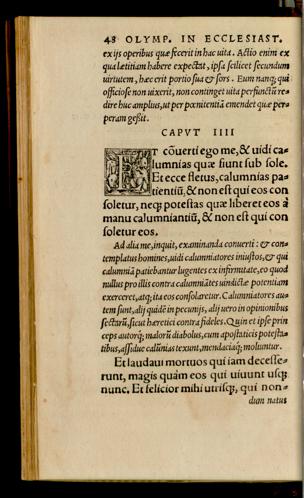 48 OLYMP. IN ECCLESIAST.
ex ijs operibus quæ fecerit in hac uita. Actio enim ex
qua lætitiam habere expectat, ipsa scilicet secundum
uirtutem, hæc erit portio sua & sors. Eum nanq; qui
officiose non uixerit, non continget uita perfunctũ re-
dire huc amplius, ut per pœnitentiã emendet quæ per-
peram gessit.
CAPVT IIII
ET cõuerti ego me, & uidi ca-
lumnias quæ fiunt sub sole.
Et ecce fletus, calumnias pa-
tientiũ, & non est qui eos con
soletur, neq; potestas quæ liberet eos à
manu calumniantiũ, & non est qui con
soletur eos.
Ad alia me, inquit, examinanda conuerti: & con-
templatus homines, uidi calumniatores iniustos, & qui
calumniã patiebantur lugentes ex infirmitate, eo quod
nullus pro illis contra calumniãtes uindictæ potentiam
exerceret, atq; ita eos consolaretur. Calumniatores au-
tem sunt, alij quidẽ in pecunijs, alij uero in opinionibus
sectarũ, sicut hæretici contra fideles. Quin et ipse prin
ceps autorq; malorũ diabolus, cum apostaticis potesta-
tibus, assidue calũnias texunt, mendaciaq; moliuntur.
Et laudaui mortuos qui iam decesse-
runt, magis quàm eos qui uiuunt usq;
nunc. Et felicior mihi utrisq;, qui non-
dum natus